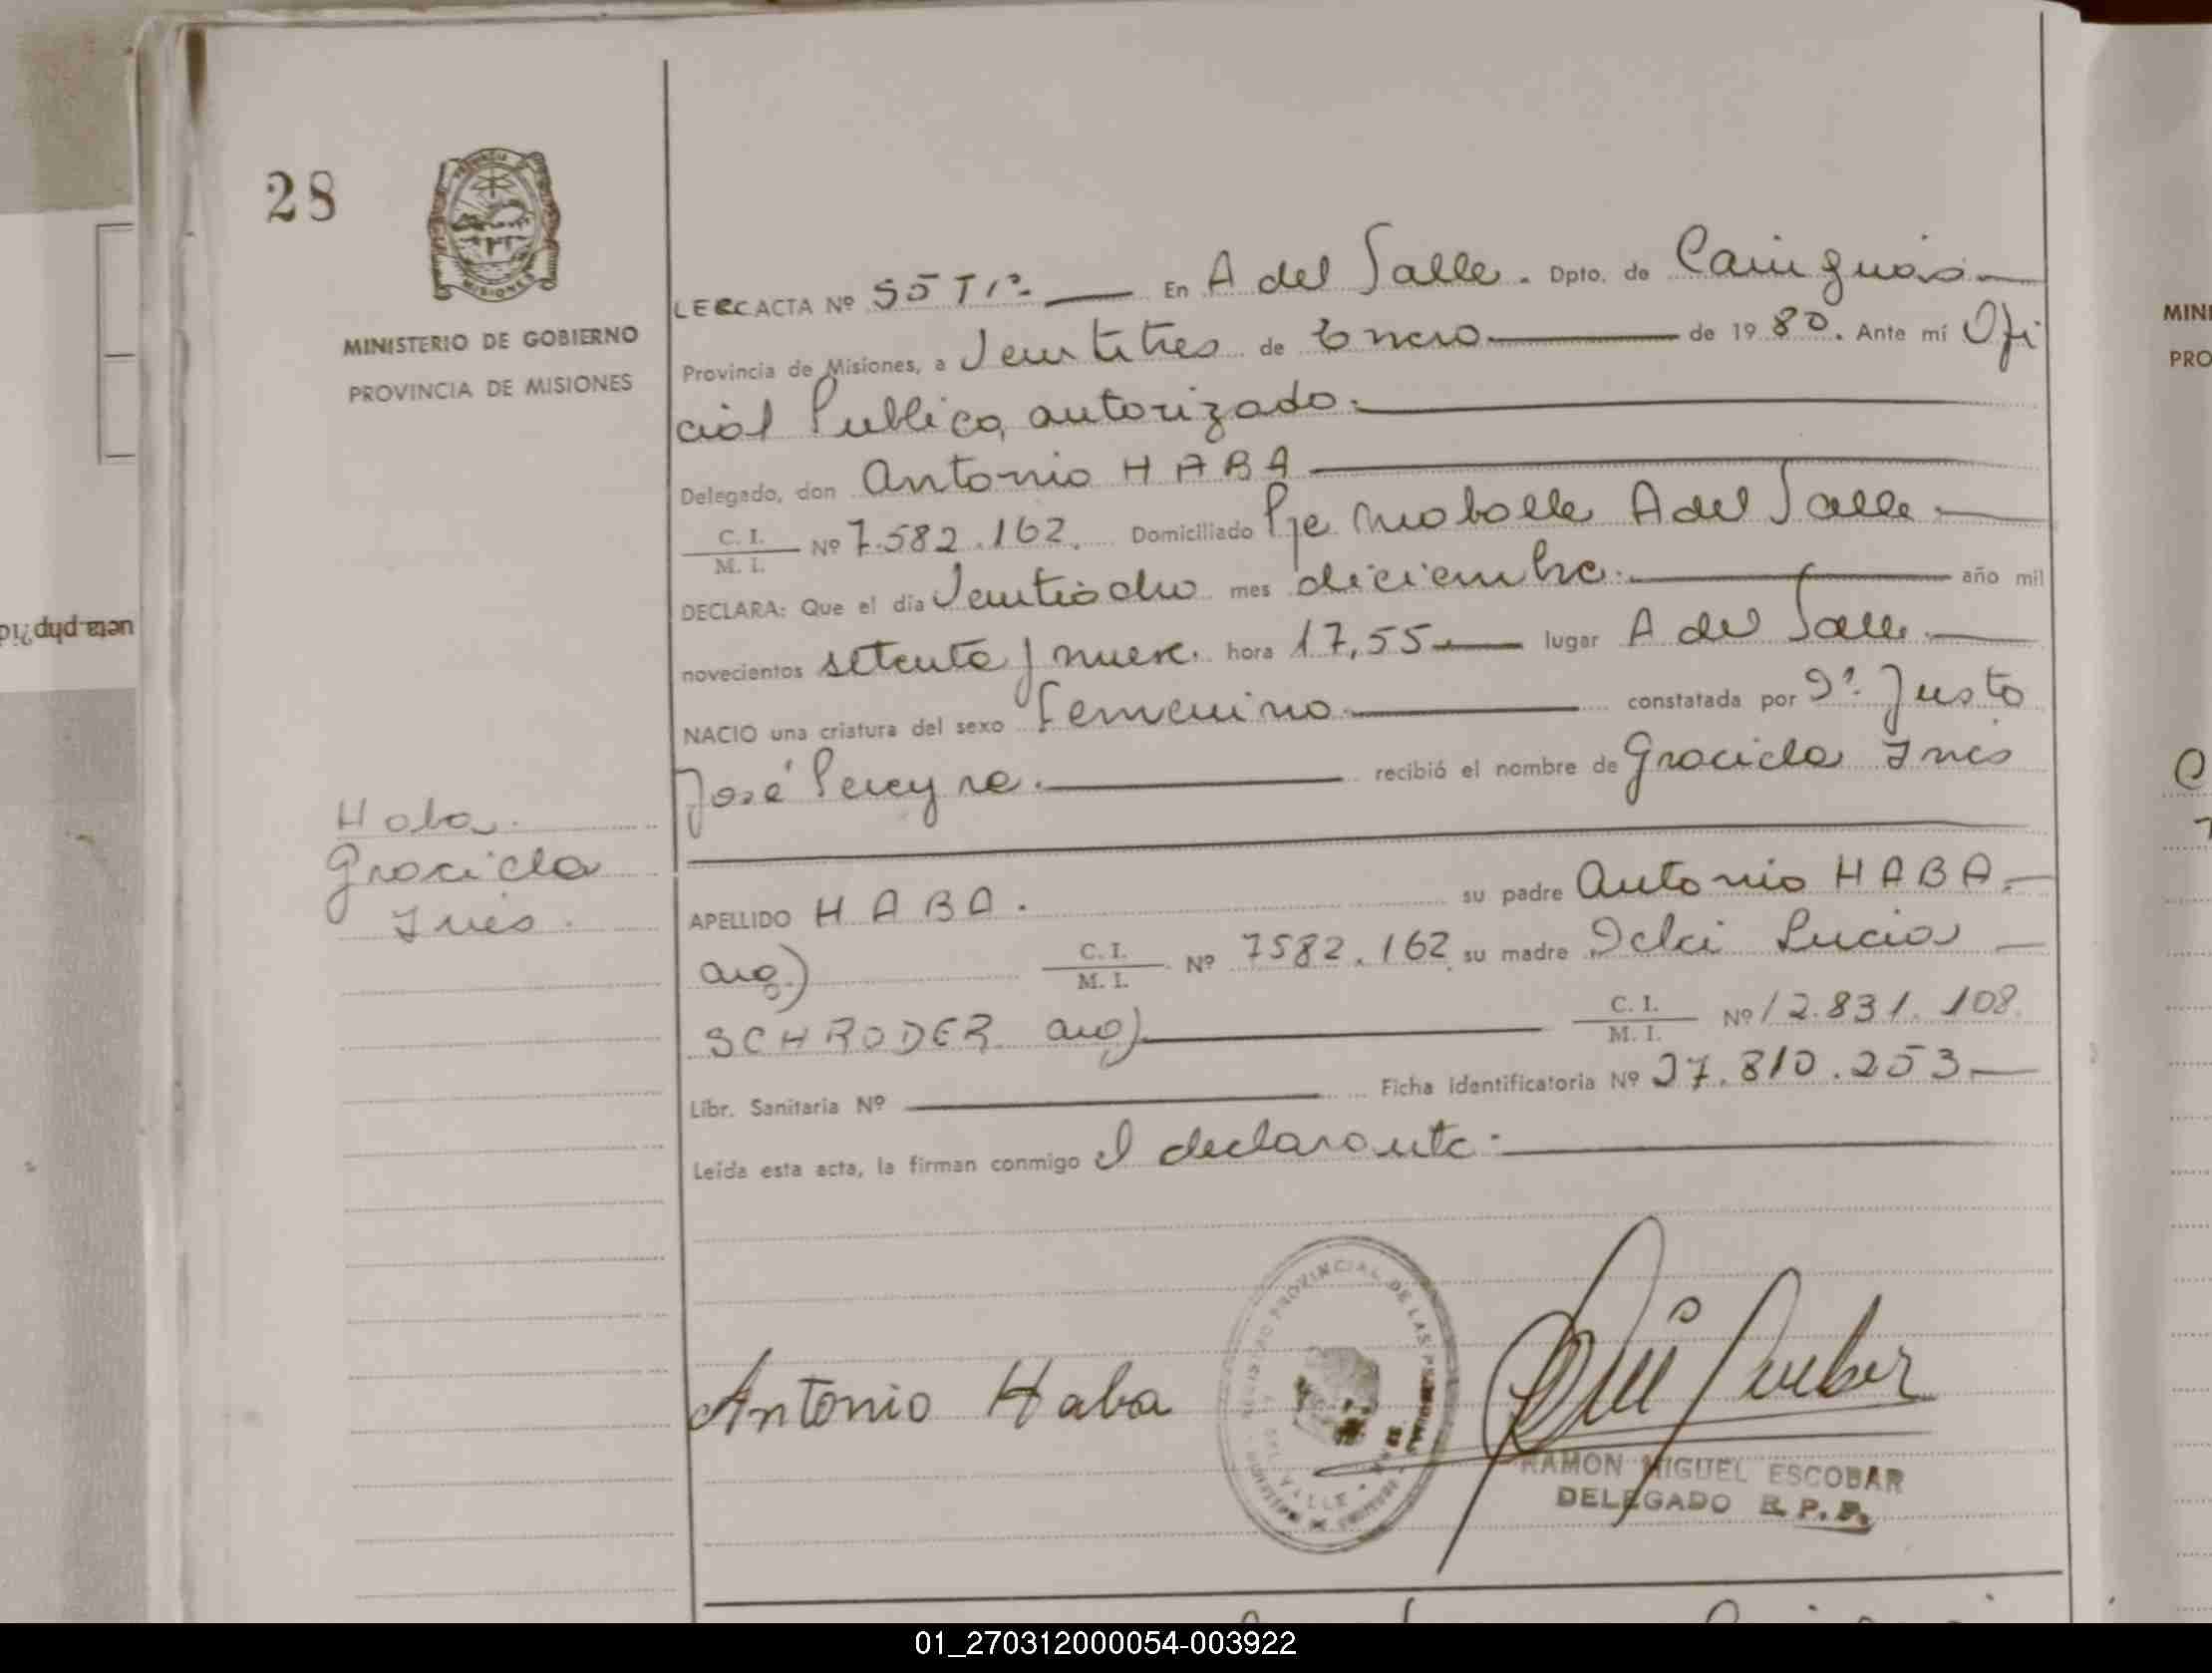 28
PROVINCIA DE
MISIONES
MINISTERIO DE GOBIERNO
PROVINCIA DE MISIONES
LERC ACTA Nº 55 Tº En A del Valle. Dpto. de Cainguás
Provincia de Misiones, a Veintitres de Enero de 1980. Ante mí Ofi
cial Publico, autorizado.
Delegado, don Antonio HABA
C. I.
M. I. Nº 7.582.162. Domiciliado Pje A del Valle
DECLARA: Que el día Veintiocho mes diciembre. año mil
novecientos setenta y nueve. hora 17,55 lugar A del Valle
NACIO una criatura del sexo Femenino constatada por Dr. Justo
José Pereyra. recibió el nombre de Graciela Inés
Haba.
Graciela
Inés.
APELLIDO HABA. su padre Antonio HABA.
arg) C. I.
M. I. Nº 7582.162 su madre Ilci Lucia
SCHRODER arg) C. I.
M. I. Nº 12.831.108.
Libr. Sanitaria Nº Ficha Identificatoria Nº 27.810.253
Leída esta acta, la firman conmigo el declarante.
Antonio Haba
REGISTRO PROVINCIAL DE LAS PERSONAS
DEL VALLE
MISIONES
RAMON MIGUEL ESCOBAR
DELEGADO R. P. P.
ueta.php?id
MINI
PRO
01_270312000054-003922